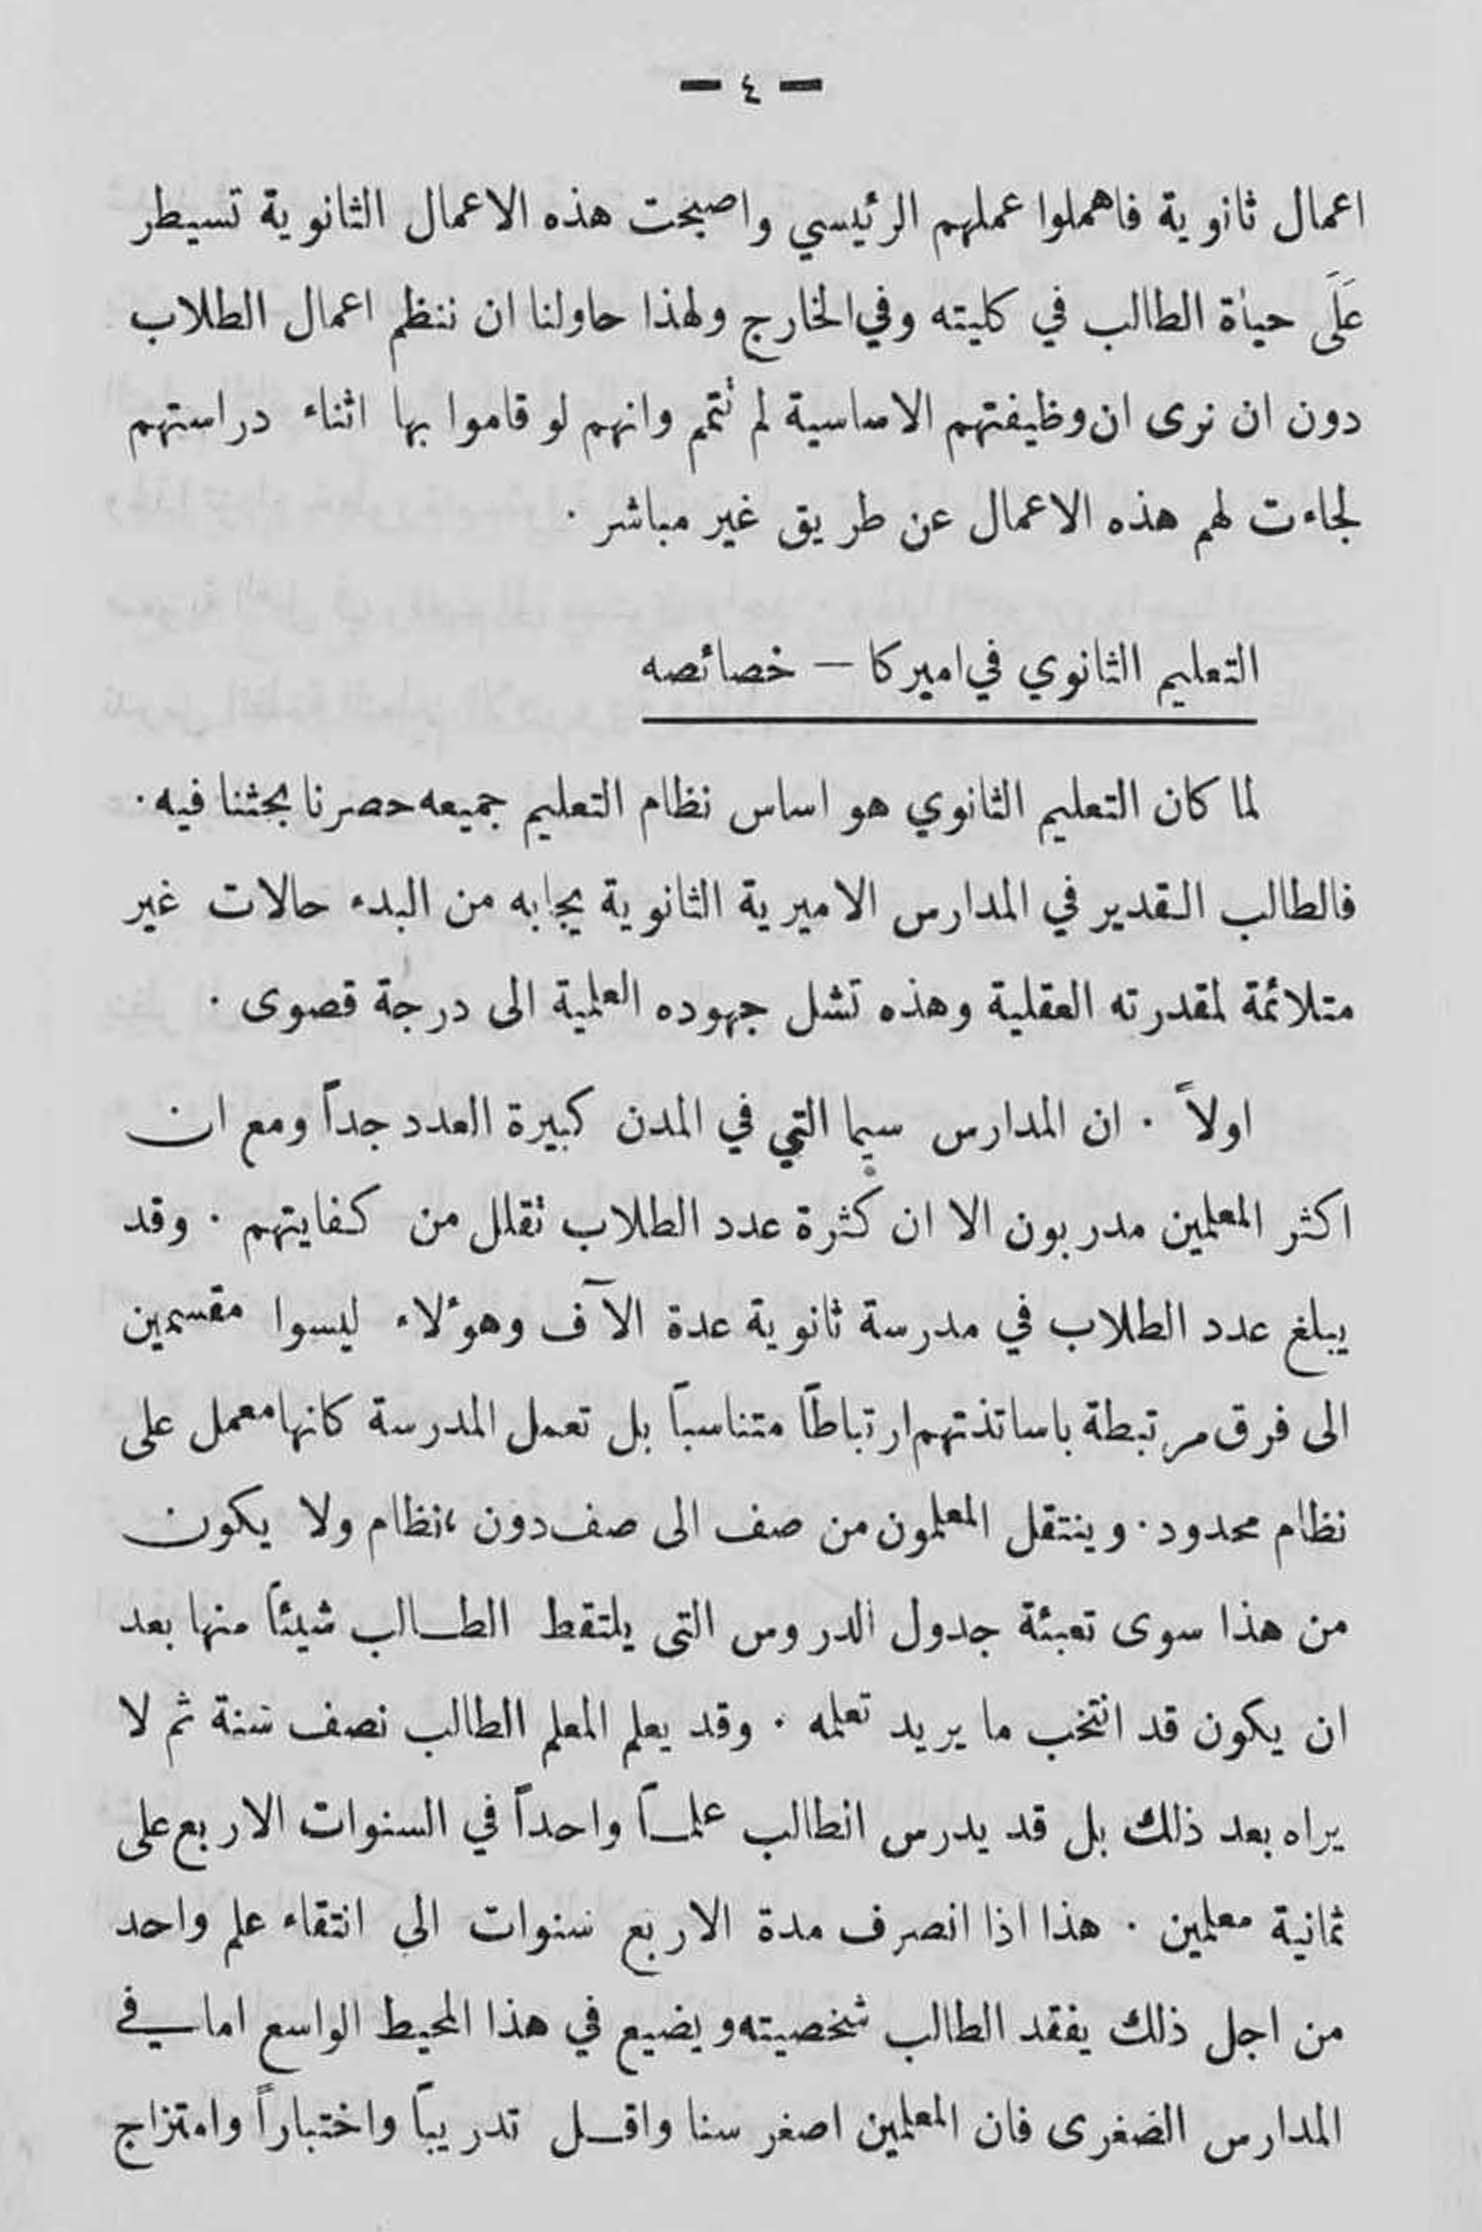 — ٤ —
اعمال ثانوية فاهملوا عملهم الرئيسي واصبحت هذه الاعمال الثانوية تسيطر
عَلَى حياة الطالب في كليته وفي الخارج ولهذا حاولنا ان ننظم اعمال الطلاب
دون ان نرى ان وظيفتهم الاساسية لم تتم وانهم لو قاموا بها اثناء دراستهم
لجاءت لهم هذه الاعمال عن طريق غير مباشر .
التعليم الثانوي في اميركا — خصائصه
لما كان التعليم الثانوي هو اساس نظام التعليم جميعه حصرنا بحثنا فيه .
فالطالب القدير في المدارس الاميرية الثانوية يجابه من البدء حالات غير
متلائمة لمقدرته العقلية وهذه تشل جهوده العلمية الى درجة قصوى .
اولاً . ان المدارس سيما التي في المدن كبيرة العدد جداً ومع ان
اكثر المعلمين مدربون الا ان كثرة عدد الطلاب تقلل من كفايتهم . وقد
يبلغ عدد الطلاب في مدرسة ثانوية عدة الآف وهؤلاء ليسوا مقسمين
الى فرق مرتبطة باساتذتهم ارتباطاً متناسباً بل تعمل المدرسة كانها معمل على
نظام محدود . وينتقل المعلمون من صف الى صف دون ،نظام ولا يكون
من هذا سوى تعبئة جدول الدروس التى يلتقط الطالب شيئاً منها بعد
ان يكون قد انتخب ما يريد تعلمه . وقد يعلم المعلم الطالب نصف سنة ثم لا
يراه بعد ذلك بل قد يدرس الطالب علماً واحداً في السنوات الاربع على
ثمانية معلمين . هذا اذا انصرف مدة الاربع سنوات الى انتقاء علم واحد
من اجل ذلك يفقد الطالب شخصيته ويضيع في هذا المحيط الواسع اما في
المدارس الضغرى فان المعلمين اصغر سنا واقل تدريباً واختباراً وامتزاج